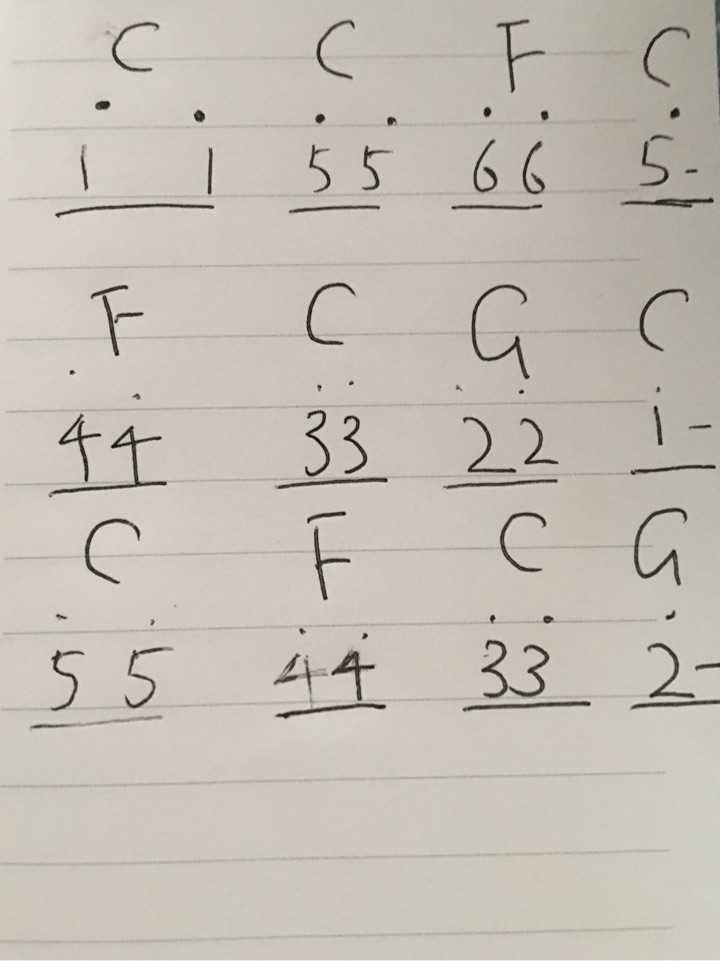 C C F C
1 1 5 5 6 6 5-
F C G C
4 4 3 3 2 2 1-
C F C G
5 5 4 4 3 3 2-